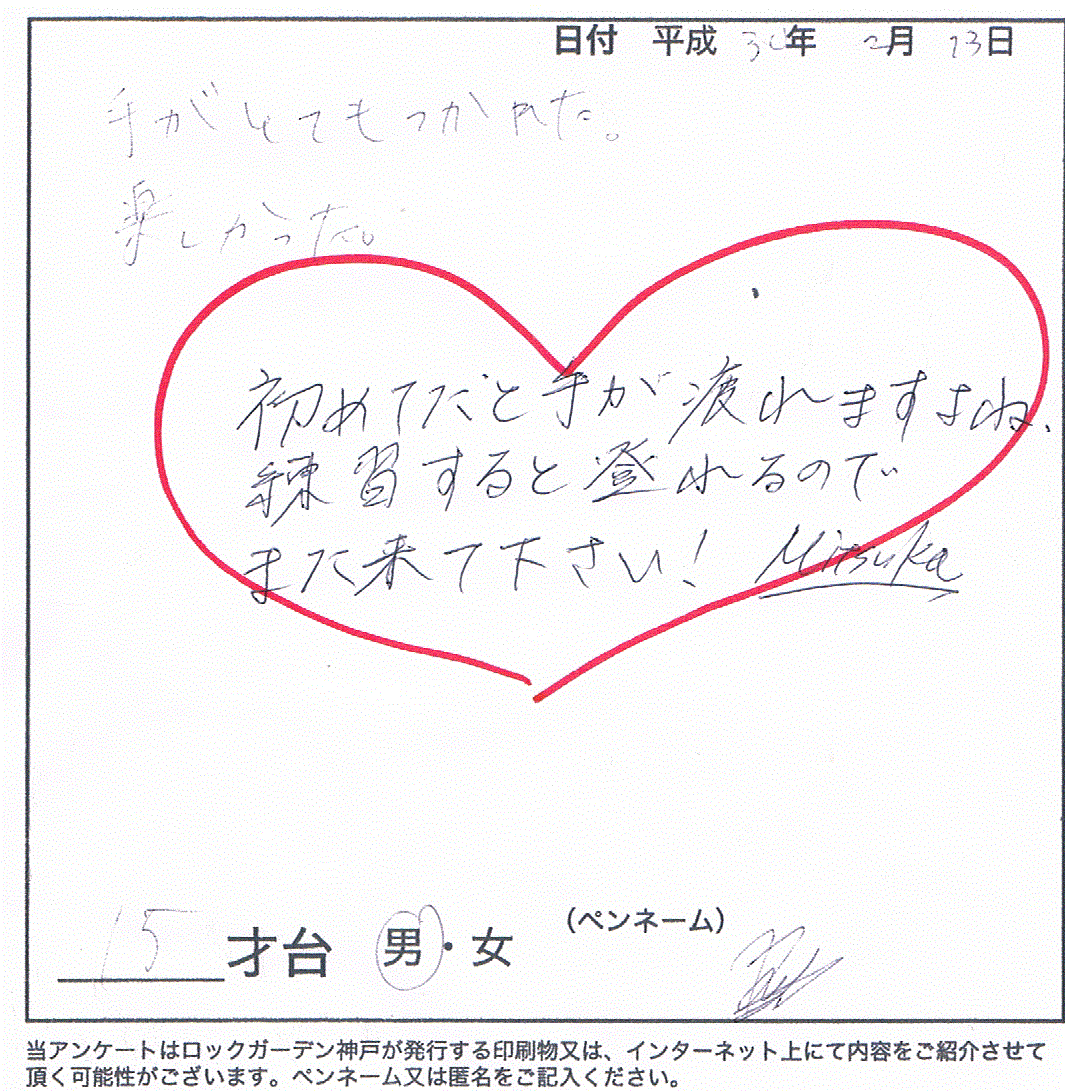 日付 平成 30年 2月 13日
手がとてもつかれた。
楽しかった。
初めてだと手が疲れますよね、
練習すると登れるので
また来て下さい! Mitsuka
15 才台 男・女 (ペンネーム)
当アンケートはロックガーデン神戸が発行する印刷物又は、インターネット上にて内容をご紹介させて
頂く可能性がございます。ペンネーム又は匿名をご記入ください。